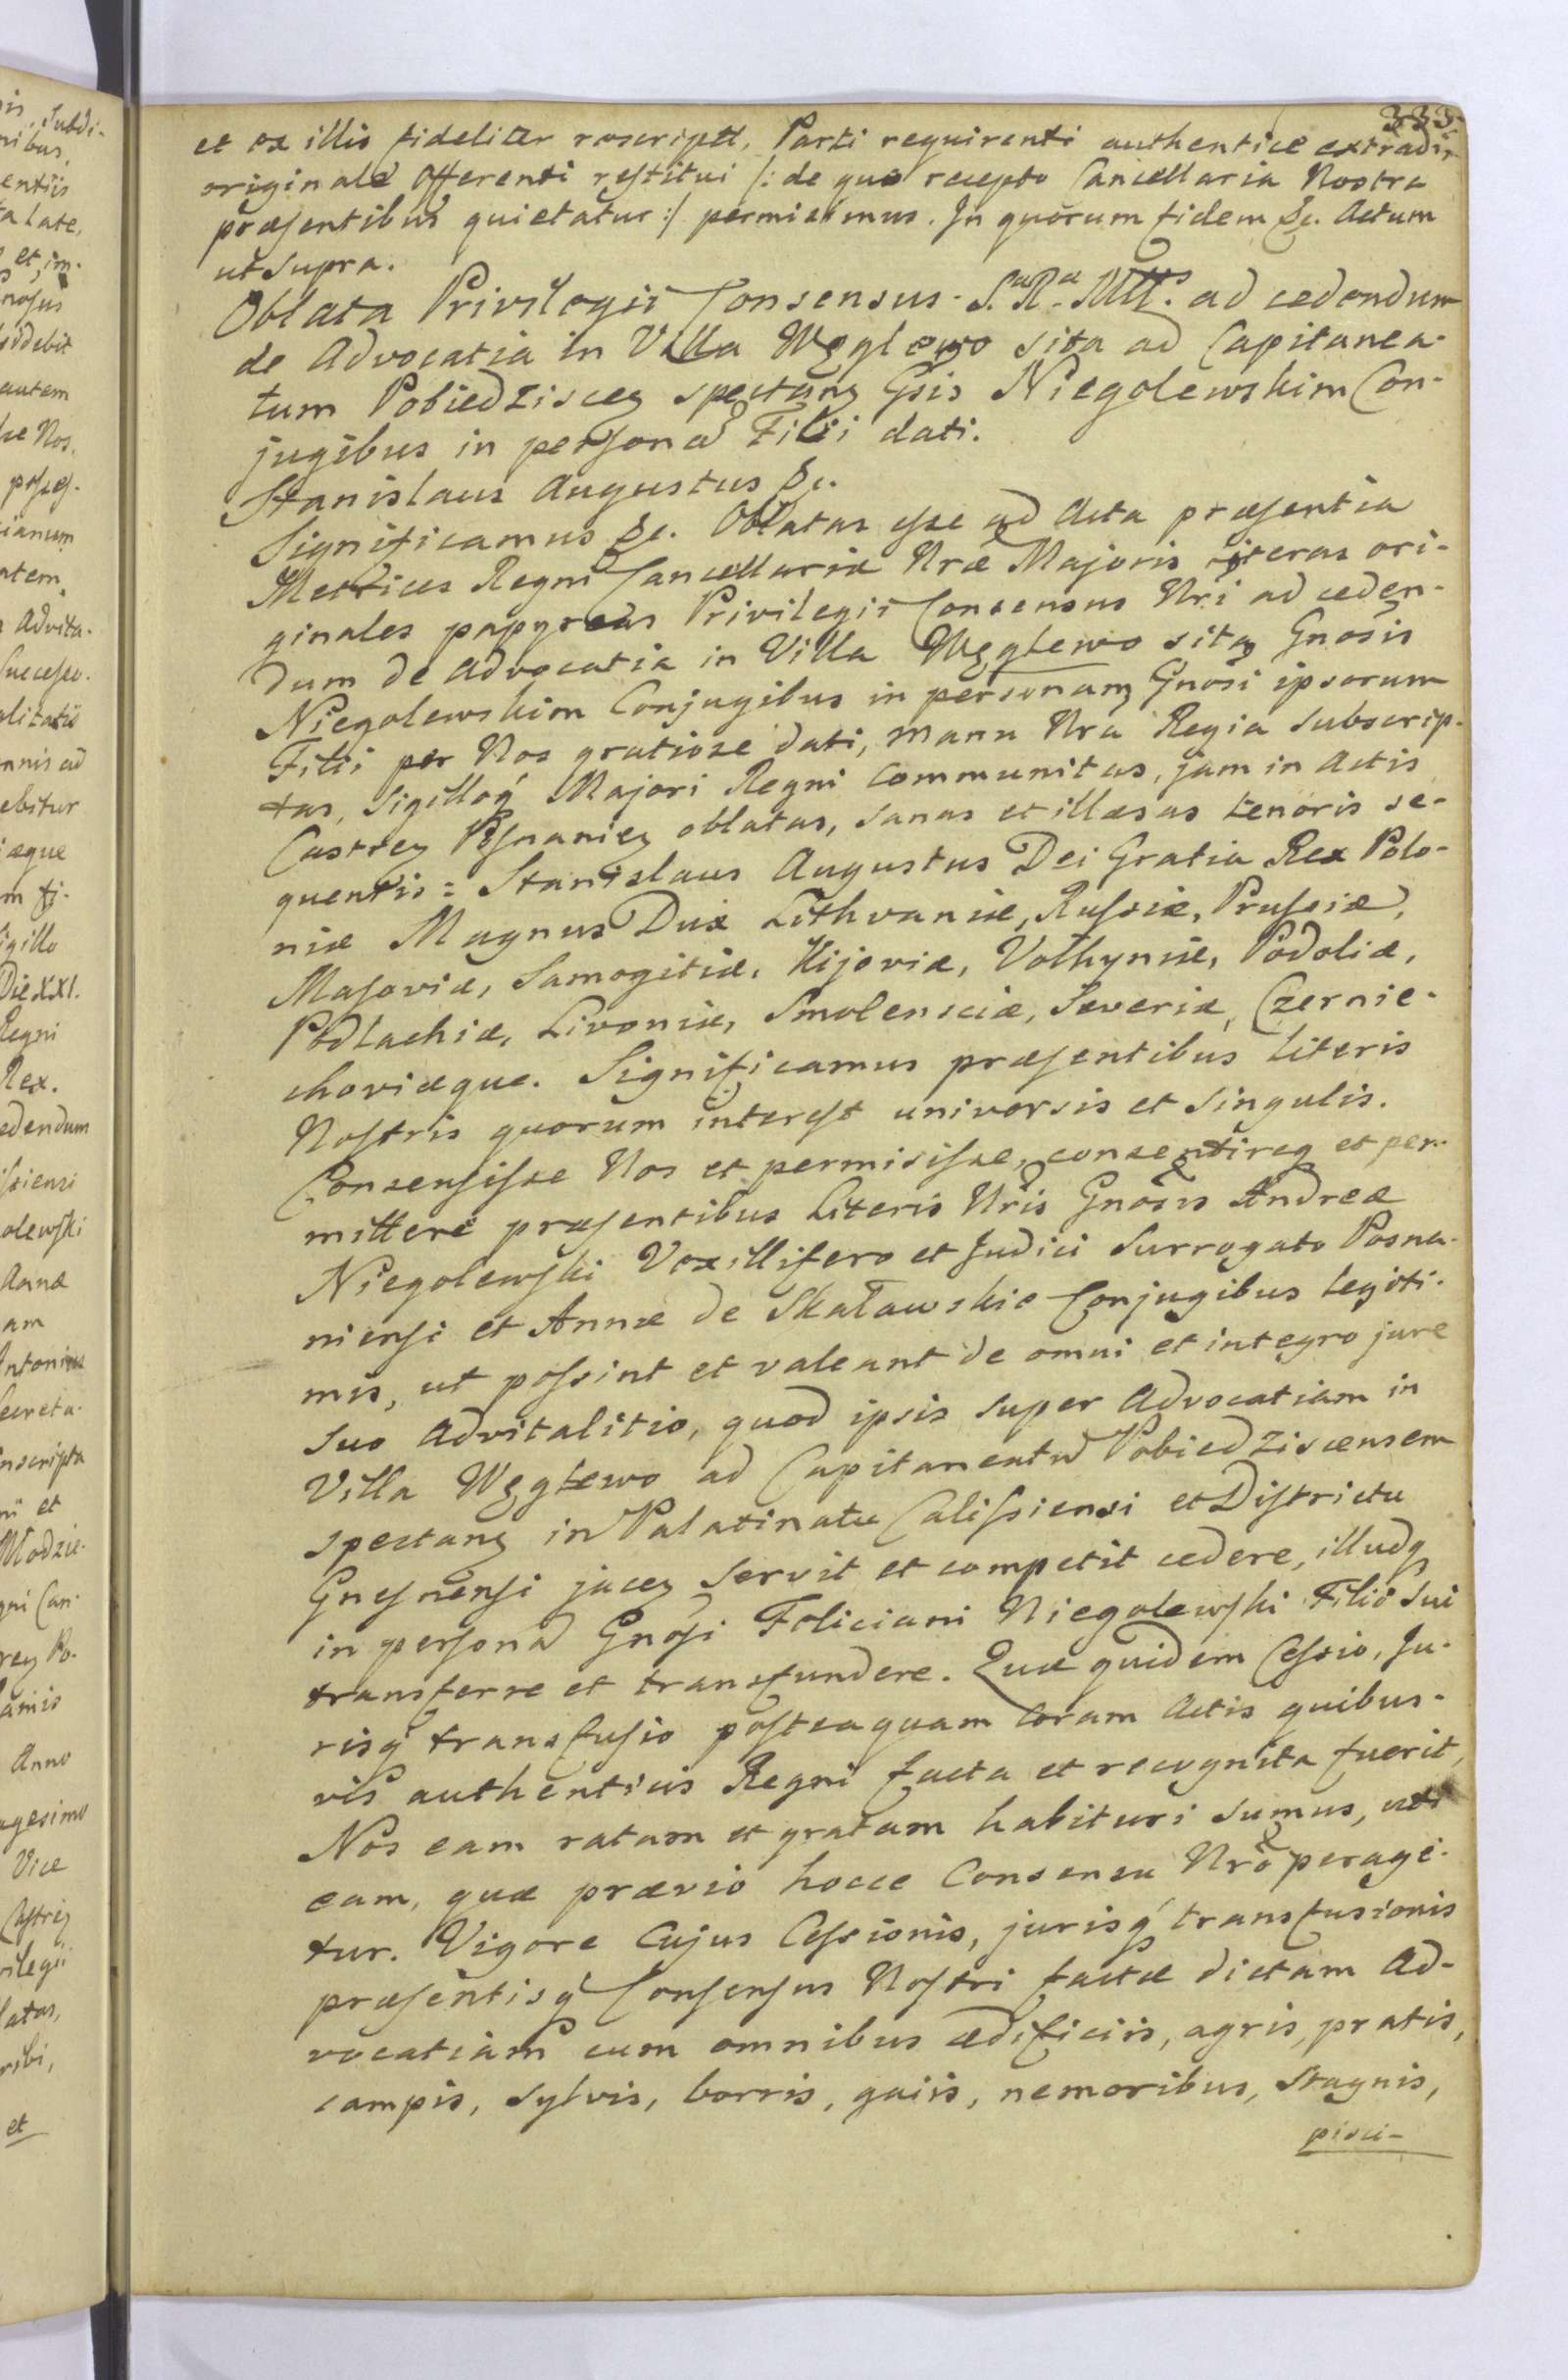 333.
et ex illis fideliter rescripti, Parti requirenti authentice extradi,
originale Offerenti restitui /: de quo recepto Cancellaria Nostra
præsentibus quietatur :/ permisimus. In quorum fidem &c. Actum
ut supra.
Oblata Privilegii Consensus S. R. Mttis. ad cedendum
de Advocatia in Villa Węglewo sita ad Capitanea-
tum Pobiedziscen spectan Gsis Niegolewskim Con-
jugibus in persona Filii dati.
Stanislaus Augustus &c.
Significamus &c. Oblatas esse ad Acta præsentia
Metrices Regni Cancellariæ Nræ Majoris literas ori-
ginales papyreas Privilegii Consensus Nri ad ceden-
dum de Advocatia in Villa Węglewo sita Gnosis
Niegolewskim Conjugibus in personam Gnosi ipsorum
Filii per Nos gratiose dati, manu Nra Regia subscrip-
tas, Sigilloq Majori Regni communitas, jam in Actis
Castren Posnanien oblatas, sanas et illæsas tenoris se-
quentis: Stanislaus Augustus Dei Gratia Rex Polo-
niæ Magnus Dux Lithvaniæ, Russiæ, Prussiæ,
Masoviæ, Samogitiæ, Kijoviæ, Volhyniæ, Podoliæ,
Podlachiæ, Livoniæ, Smolensciæ, Severiæ, Czernie-
choviæque. Significamus præsentibus Literis
Nostris quorum interest universis et singulis.
Consensisse Nos et permisisse, consentireq et per-
mittere præsentibus Literis Nris Gnosis Andreæ
Niegolewski Vexillifero et Judici Surrogato Posna-
niensi et Annæ de Skaławskie Conjugibus legiti-
mis, ut possint et valeant de omni et integro jure
suo Advitalitio, quod ipsis super Advocatiam in
Villa Węglewo ad Capitaneatu Pobiedziscensem
spectan in Palatinatu Calissiensi et Districtu
Gnesnensi jacen servit et competit cedere, illudq
in persona Gnosi Feliciani Niegolewski Filii sui
transferre et transfundere. Quæ quidem Cessio, Ju-
risq transfusio posteaquam coram Actis quibus-
vis authenticis Regni facta et recognita fuerit,
Nos eam ratam et gratam habituri sumus, uti
eam, quæ prævio hocce Consensu Nro perage-
tur. Vigore Cujus Cessionis, jurisq transfusionis
præsentisq Consensus Nostri factæ dictam Ad-
vocatiam cum omnibus ædificiis, agris, pratis,
campis, sylvis, borris, gaiis, nemoribus, stagnis,
pisci-